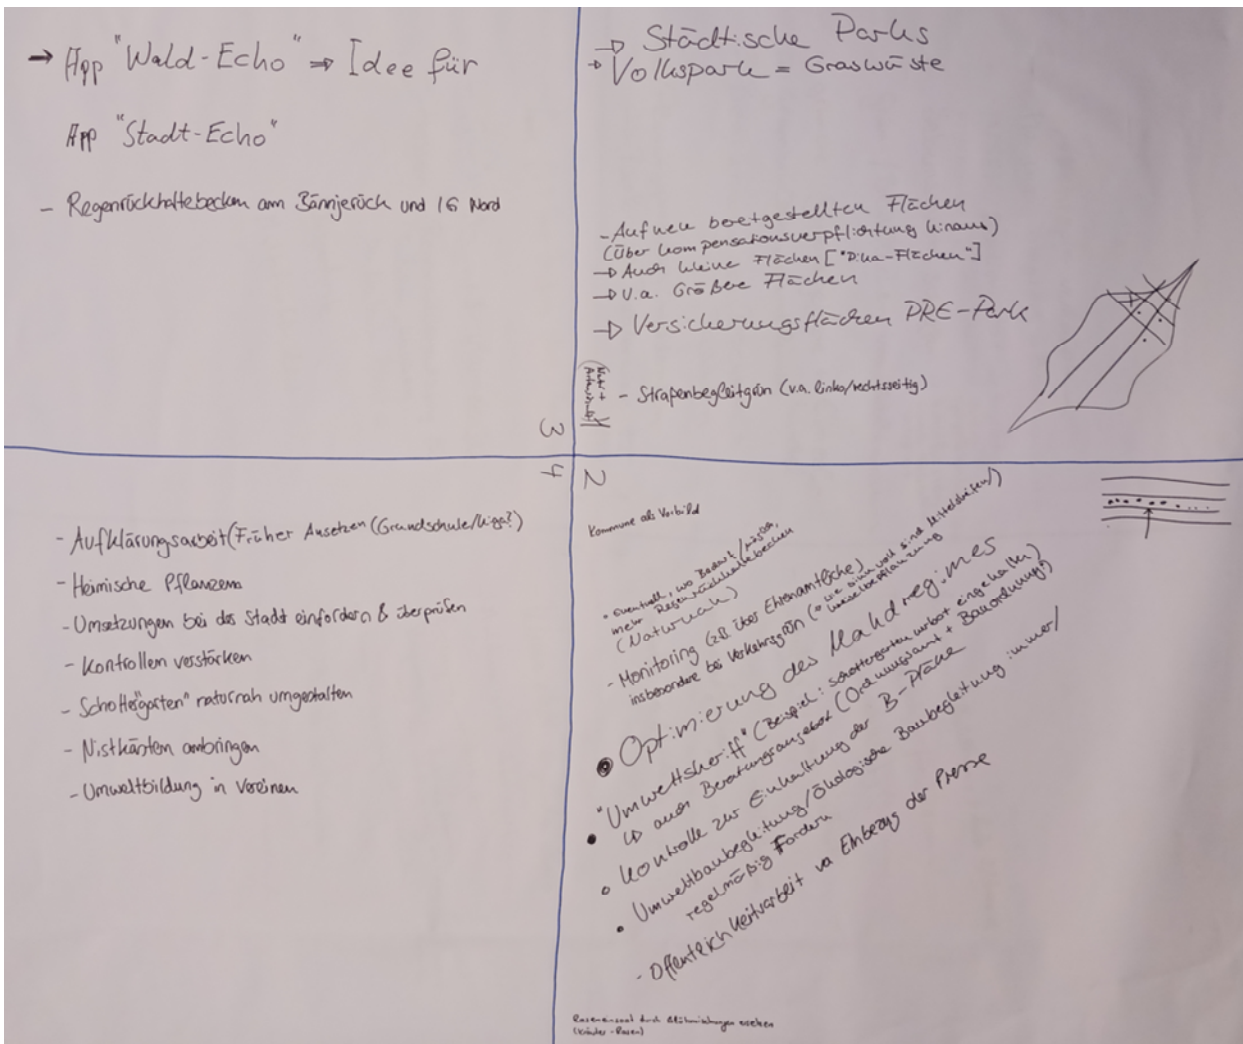 → App "Wald-Echo" ⇒ Idee für
App "Stadt-Echo"
- Regenrückhaltebecken am Bännjerück und IG Nord
3
→ Städtische Parks
→ Volkspark = Graswüste
- Auf neu beretgestellten Flächen
(Über Kompensationsverpflichtung hinaus)
→ Auch kleine Flächen ["Pika-Flächen"]
→ V.a. Größere Flächen
→ Versicherungsflächen PRE-Park
- Straßenbegleitgrün (v.a. links/rechtsseitig)
4
- Aufklärungsarbeit (Früher Ansetzen (Grundschule/Kiga?)
- Heimische Pflanzen
- Umsetzungen bei der Stadt einfordern & überprüfen
- Kontrollen verstärken
- Schotter"gärten" naturnah umgestalten
- Nistkästen anbringen
- Umweltbildung in Vereinen
2
Kommune als Vorbild
* Eventuell, wo Bedarf
mehr Regenrückhaltebecken
(Naturnah)
- Monitoring (zB über Ehrenamtliche)
insbesondere bei Verkehrsgrün (* wie sinnvoll sind Mittelstreifen/)
• Optimierung des Mahdregimes
• "Umweltsheriff" (Beispiel: Schottergarten verbot eingehalten)
↳ auch Beratungsangebot (Ordnungsamt + Bauordnung?)
• Kontrolle zur Einhaltung der B-Pläne
• Umweltbaubegleitung/Ökologische Baubegleitung immer/
regelmäßig Fordern
- Öffentlichkeitsarbeit va Einbezug der Presse
Raseneinsaat durch Blühmischungen ersetzen
(Kräuter-Rasen)